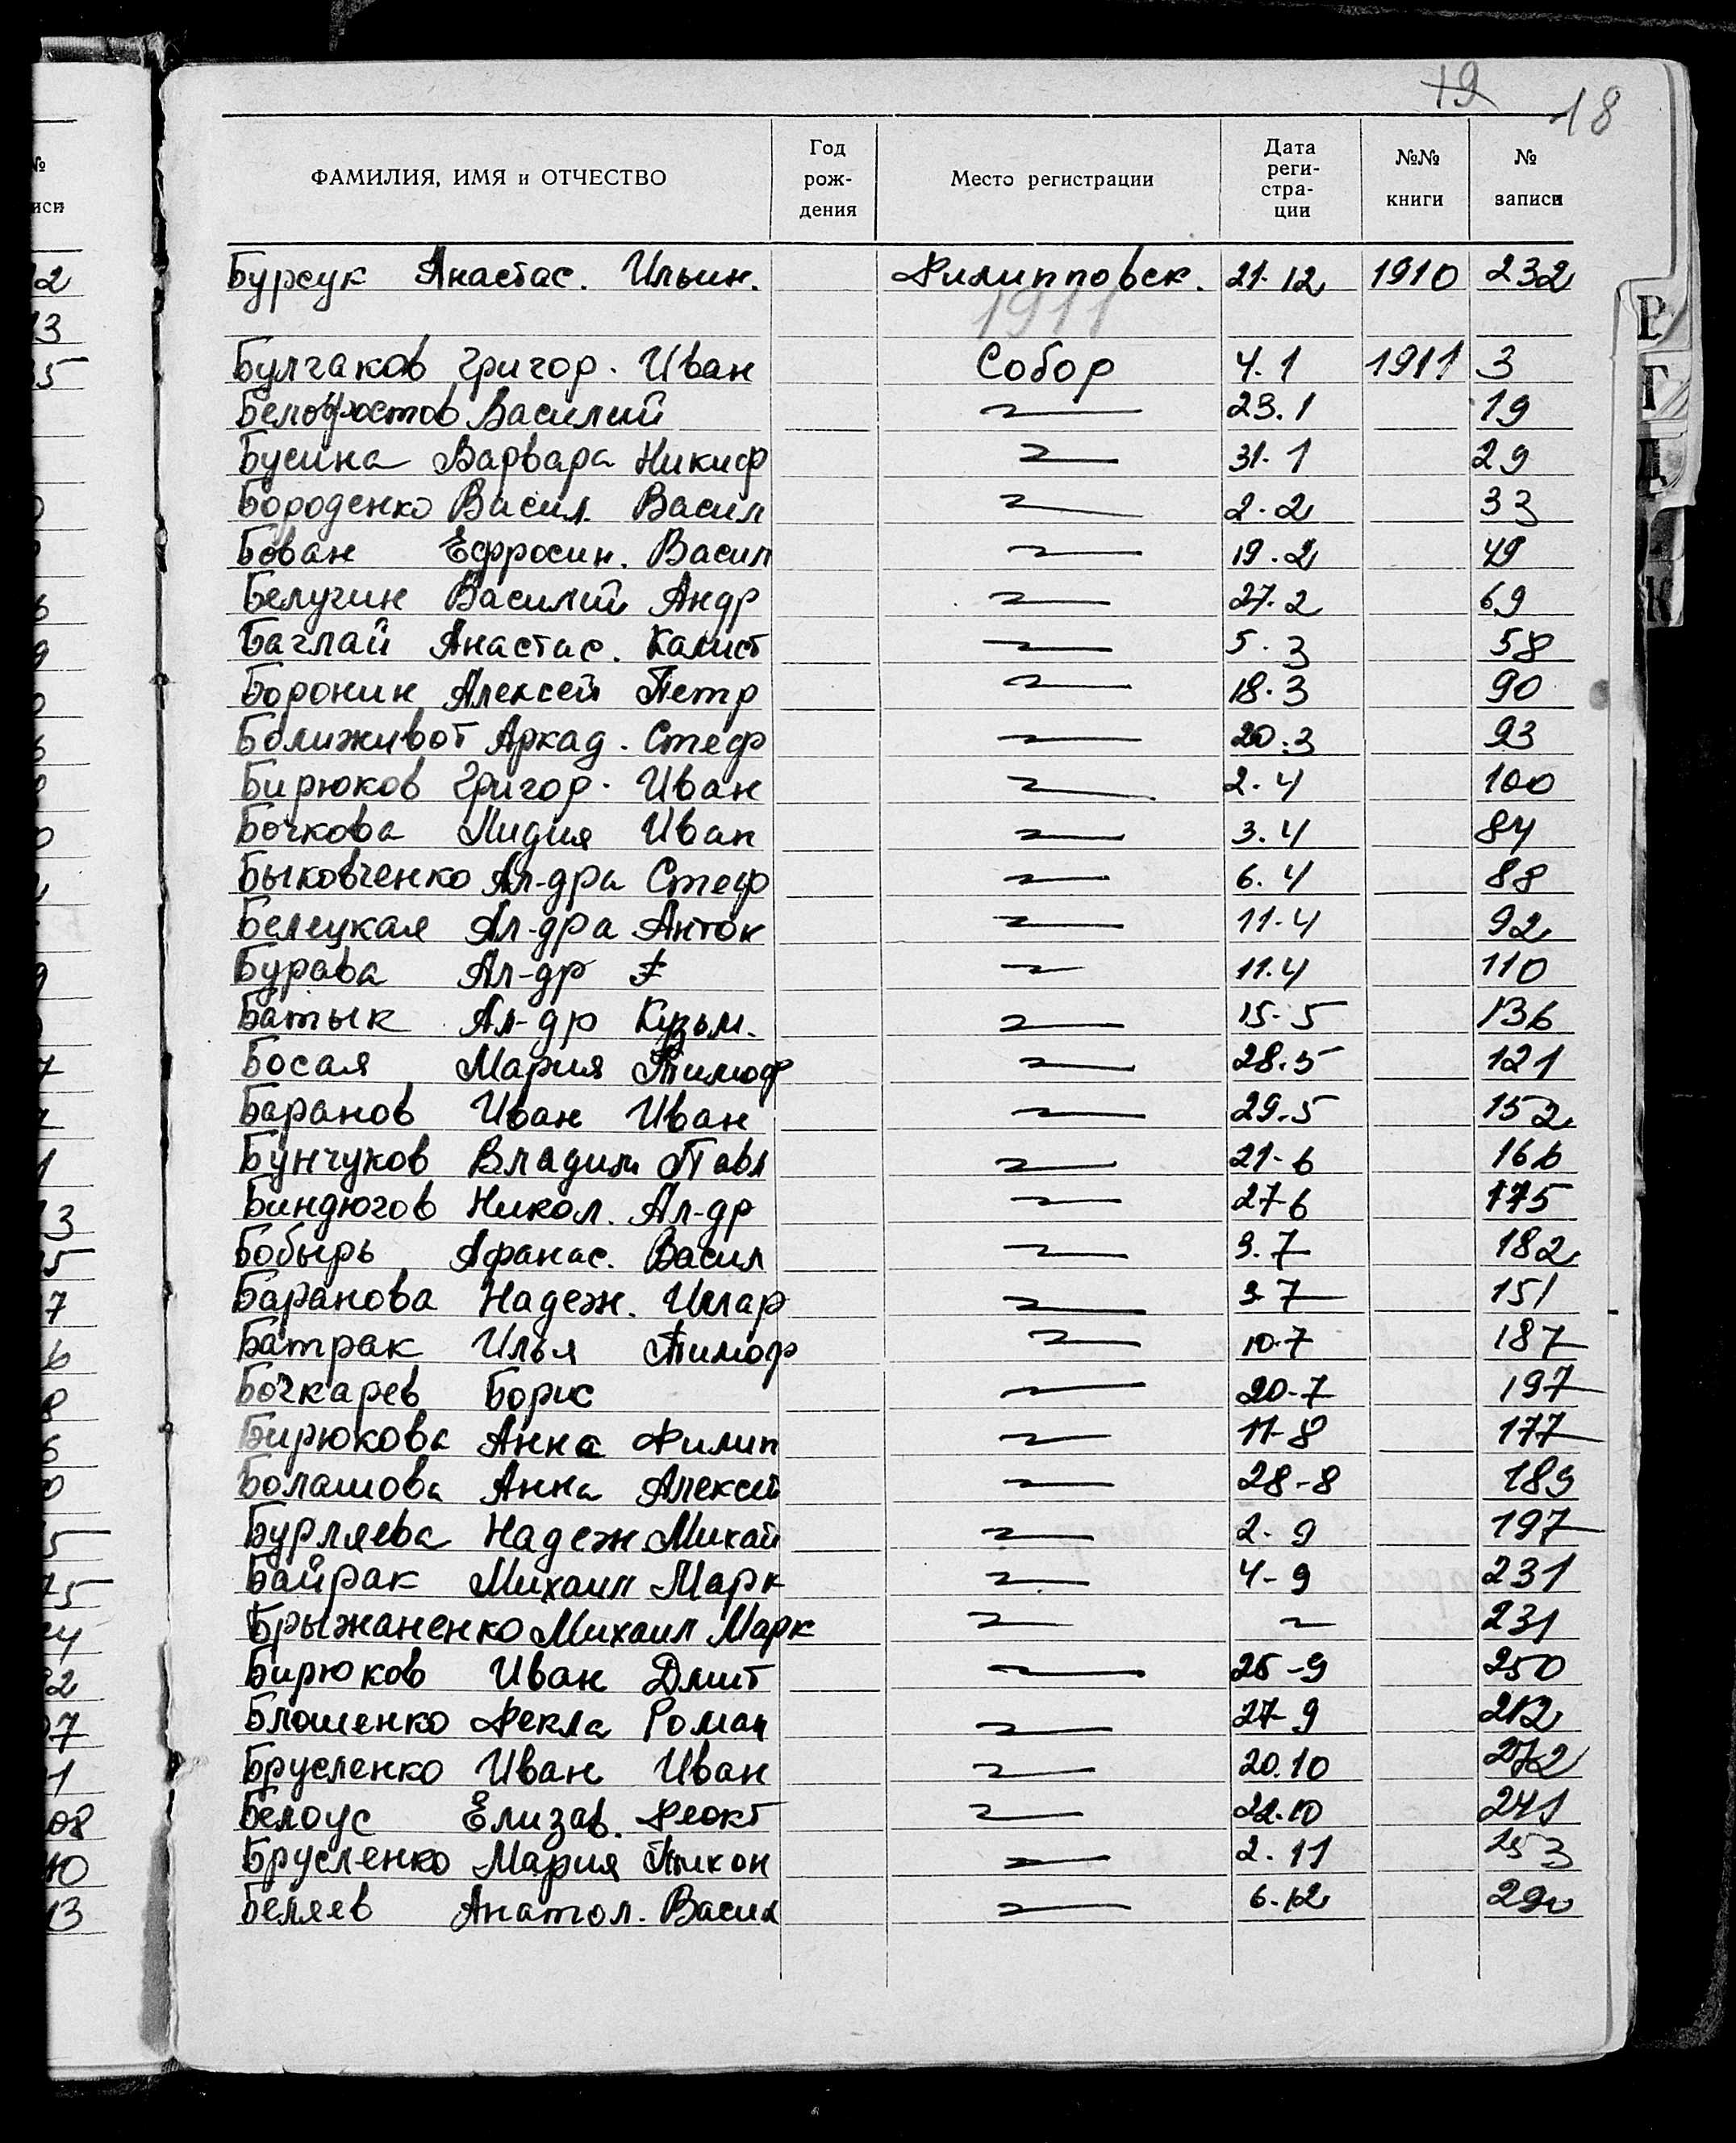 19 18
ФАМИЛИЯ, ИМЯ и ОТЧЕСТВО Год рож-дения Место регистрации Дата реги-стра-ции №№ книги № записи
Бурсук Анастас. Ильин. Филипповск. 21.12 1910 232
1911
Булгаков Григор. Иван Собор 4.1 1911 3
Василий 23.1 19
Бусина Варвара Никиф 31.1 29
Бороденко Васил. Васил 2.2 33
Бован Ефросин. Васил 19.2 49
Белугин Василий Андр 27.2 69
Баглай Анастас. Калист 5.3 58
Боронин Алексей Петр 18.3 90
Болиживот Аркад. Стеф 20.3 93
Бирюков Григор. Иван 2.4 100
Бочкова Лидия Иван 3.4 84
Быковченко Ал-дра Стеф 6.4 88
Белецкая Ал-дра Антон 11.4 92
Бурава Ал-др 11.4 110
Батык Ал-др Кузьм. 15-5 136
Босая Мария Тимоф 28.5 121
Баранов Иван Иван 29.5 152
Бунчуков Владим Павл 21-6 166
Биндюгов Никол. Ал-др 27-6 175
Бобырь Афанас. Васил 3.7 182
Баранова Надеж. Иллар 3-7 151
Батрак Илья Тимоф 10-7 187
Бочкарев Борис 20-7 197
Бирюкова Анна Филип 11-8 177
Болашова Анна Алексей 28-8 189
Бурляева Надеж Михай 2-9 197
Байрак Михаил Марк 4-9 231
Брыжаненко Михаил Марк 231
Бирюков Иван Дмит -9 250
Блошенко Фекла Роман 27-9 212
Брусленко Иван Иван 20.10 272
Белоус Елизав. Феокт .10 241
Брусленко Мария Тихон 2.11 253
Беляев Анатол. Васил 6.12